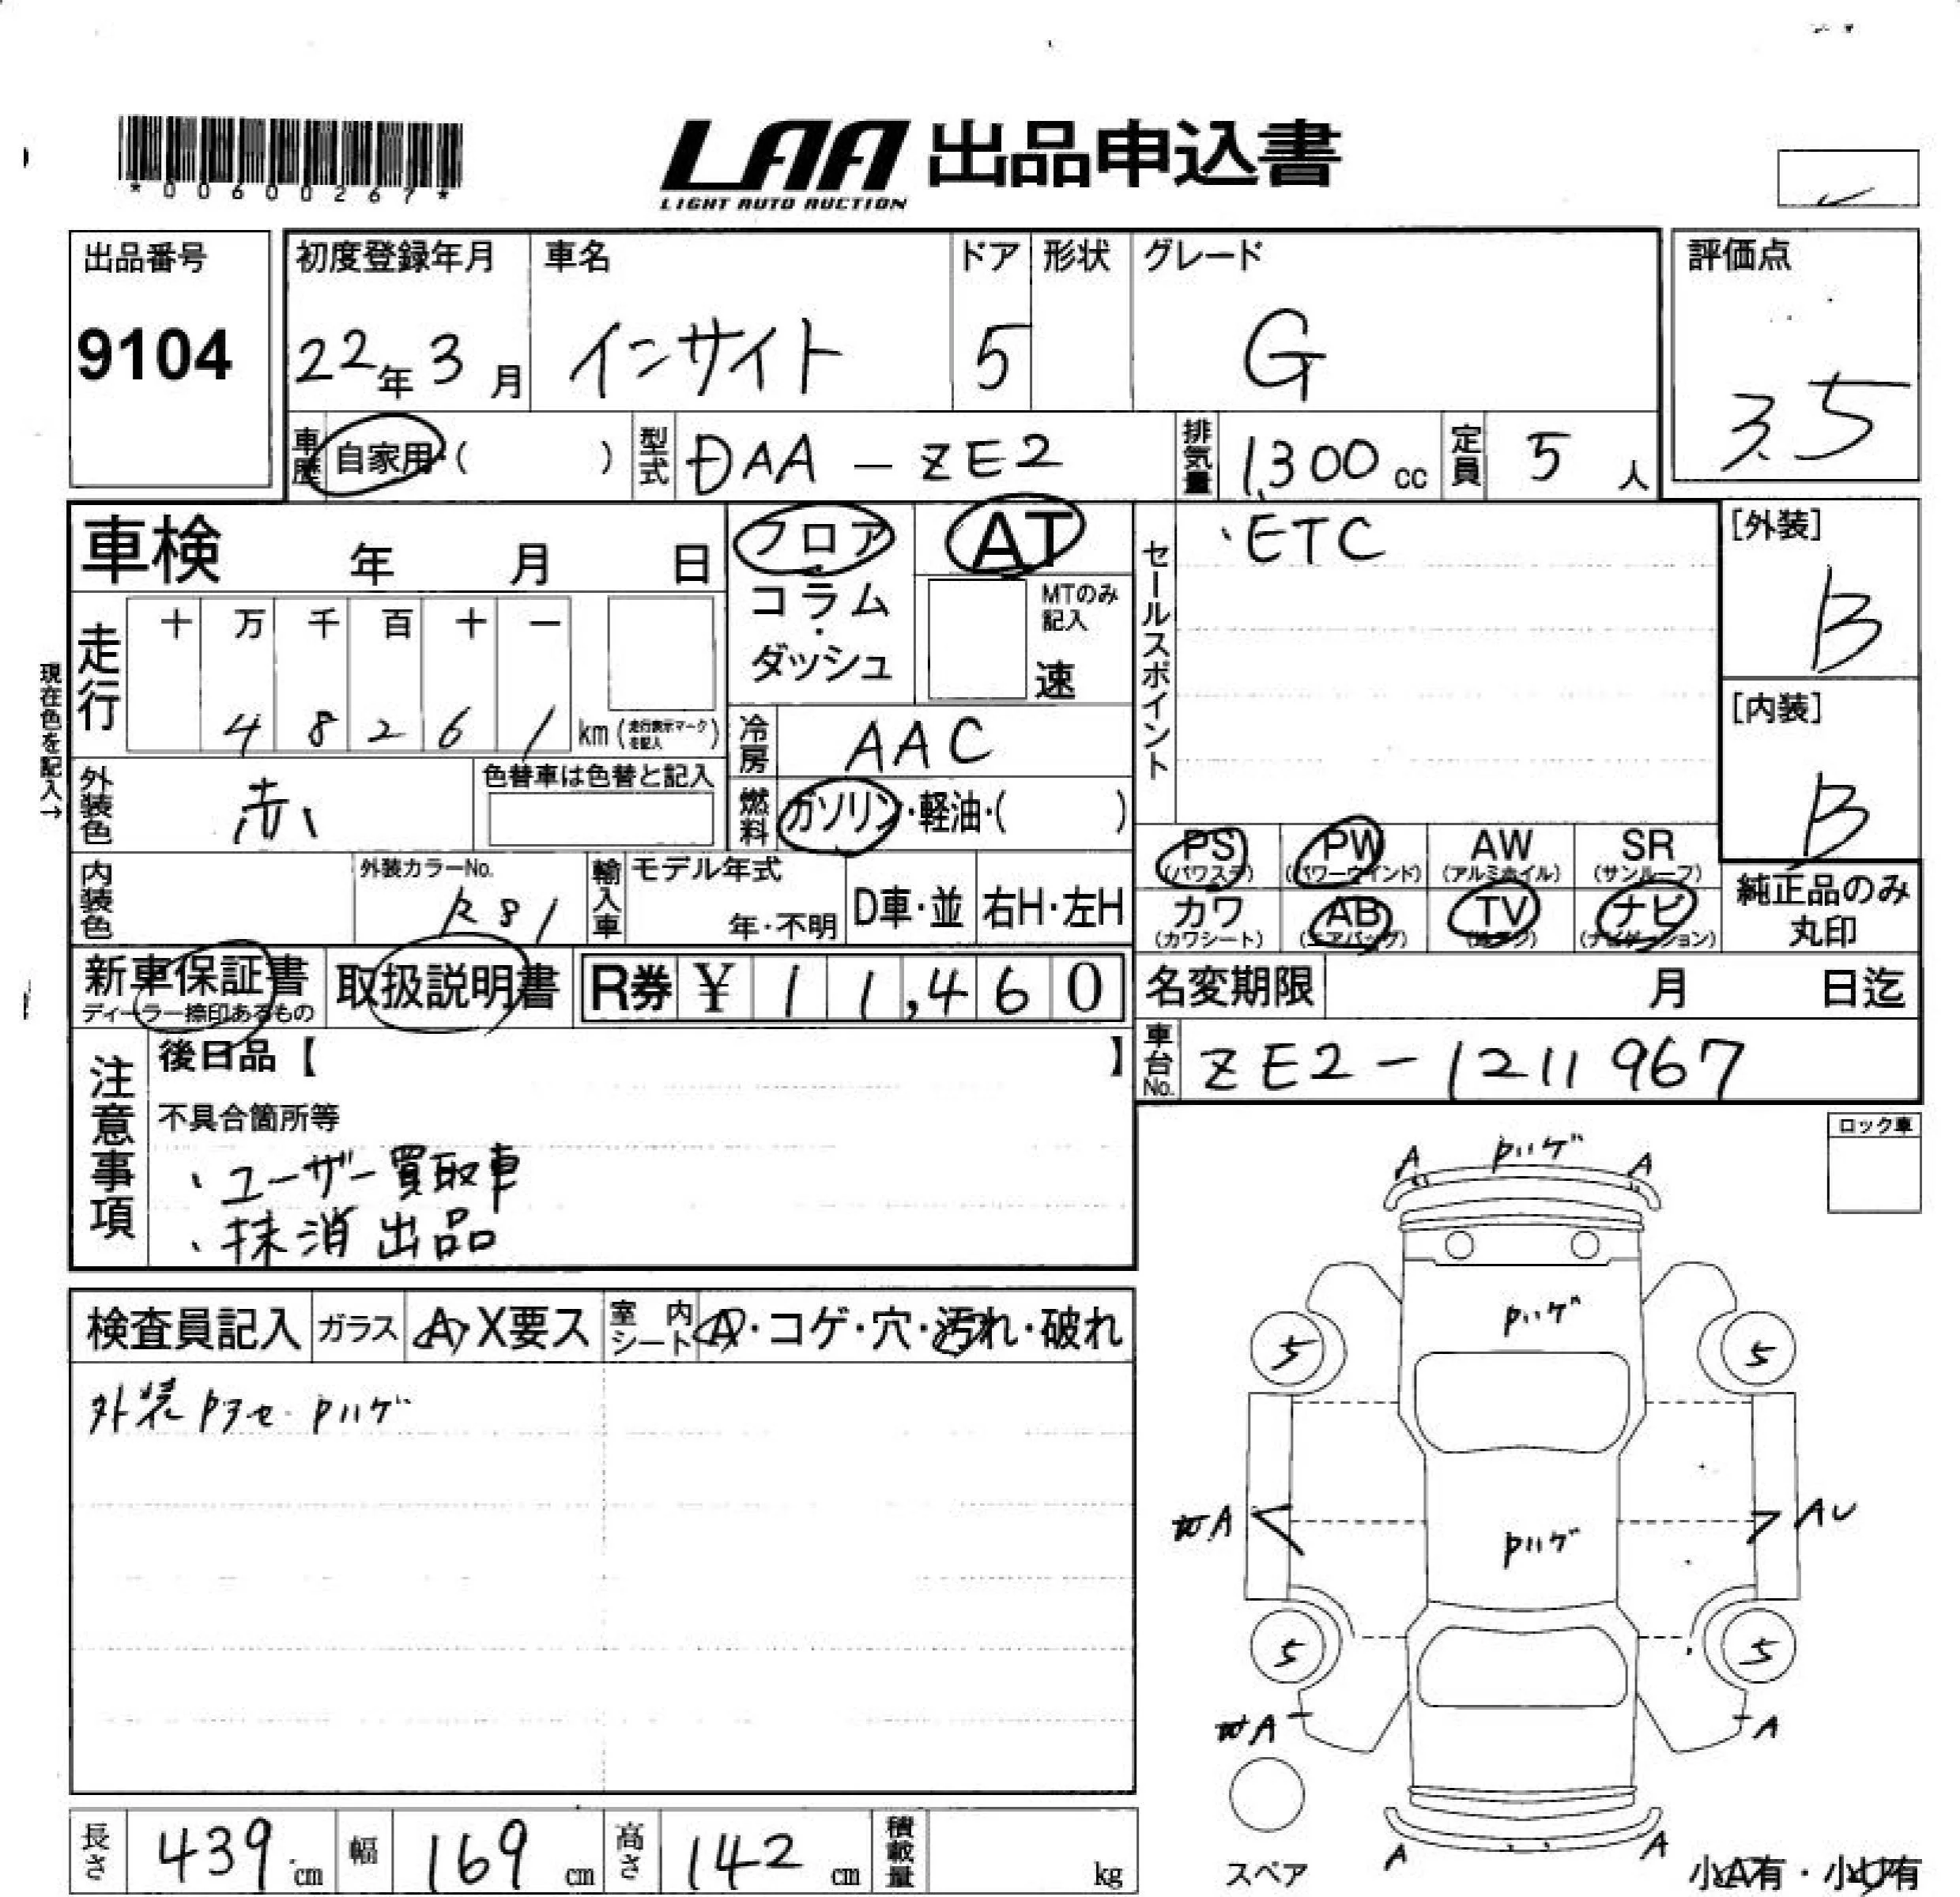 *00600267*
LAA 出品申込書
LIGHT AUTO AUCTION
出品番号
9104
初度登録年月
22年3月
車名
インサイト
ドア
5
形状
グレード
G
評価点
3.5
車歴
自家用・( )
型式
DAA-ZE2
排気量
1,300cc
定員
5人
車検 年 月 日
走行
十 万 千 百 十 一
4 8 2 6 1 km (走行表示マークを記入)
フロア
コラム
・
ダッシュ
AT
MTのみ記入
速
セールスポイント
・ETC
[外装]
B
[内装]
B
現在色を記入→
外装色
赤
色替車は色替と記入
冷房
AAC
燃料
ガソリン・軽油・( )
内装色
外装カラーNo.
R81
輸入車
モデル年式
年・不明
D車・並
右H・左H
PS
(パワステ)
PW
(パワーウインド)
AW
(アルミホイル)
SR
(サンルーフ)
カワ
(カワシート)
AB
(エアバッグ)
TV
ナビ
(ナビゲーション)
純正品のみ
丸印
新車保証書
ディーラー捺印あるもの
取扱説明書
R券 ¥11,460
名変期限 月 日迄
車台No.
ZE2-1211967
注意事項
後日品【 】
不具合箇所等
・ユーザー買取車
・抹消出品
ロック車
検査員記入
ガラス
A・X要ス
室内シート
A・コゲ・穴・汚れ・破れ
外装Pヌセ・Pハゲ
A Pハゲ A
Pハゲ
5 5
A Pハゲ AU
5 5
A A
A A
スペア
小A有・小U有
長さ 439cm
幅 169cm
高さ 142cm
積載量 kg